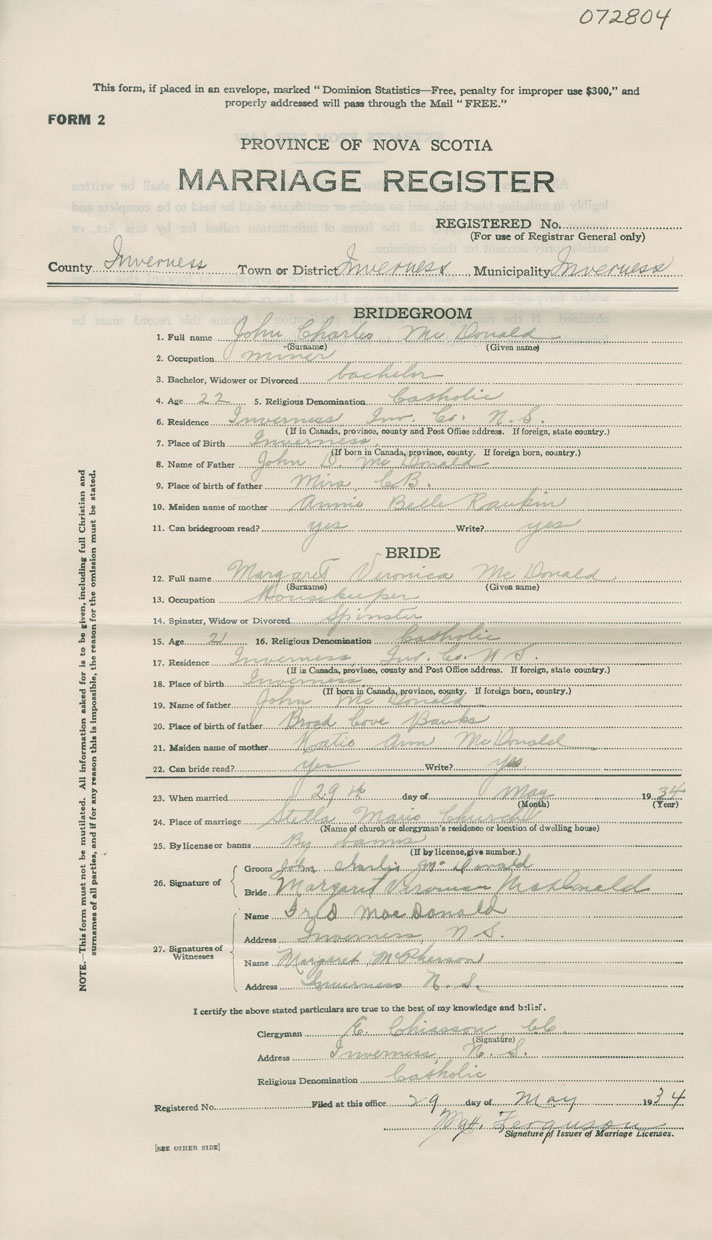 072804
This form, if placed in an envelope, marked "Dominion Statistics—Free, penalty for improper use $300," and
properly addressed will pass through the Mail "FREE."
FORM 2
PROVINCE OF NOVA SCOTIA
MARRIAGE REGISTER
REGISTERED No.
(For use of Registrar General only)
County Inverness Town or District Inverness Municipality Inverness
BRIDEGROOM
1. Full name John Charles Mc Donald
(Surname) (Given name)
2. Occupation miner
3. Bachelor, Widower or Divorced bachelor
4. Age 22 5. Religious Denomination Catholic
6. Residence Inverness Inv. Co. N.S.
(If in Canada, province, county and Post Office address. If foreign, state country.)
7. Place of Birth Inverness
(If born in Canada, province, county. If foreign born, country.)
8. Name of Father John D. Mc Donald
9. Place of birth of father Mira, C.B.
10. Maiden name of mother Annie Belle Rankin
11. Can bridegroom read? yes Write? yes
BRIDE
12. Full name Margaret Veronica Mc Donald
(Surname) (Given name)
13. Occupation Housekeeper
14. Spinster, Widow or Divorced Spinster
15. Age 21 16. Religious Denomination Catholic
17. Residence Inverness Inv. Co. N.S.
(If in Canada, province, county and Post Office address. If foreign, state country.)
18. Place of birth Inverness
(If born in Canada, province, county. If foreign born, country.)
19. Name of father John Mc Donald
20. Place of birth of father Broad Cove Banks
21. Maiden name of mother Katie Ann McDonald
22. Can bride read? Yes Write? yes
23. When married 29th day of May 1934
(Month) (Year)
24. Place of marriage Stella Maris Church
(Name of church or clergyman's residence or location of dwelling house)
25. By license or banns By banns
(If by license, give number.)
26. Signature of Groom John Charlie Mc Donald
Bride Margaret Veronica MacDonald
27. Signatures of Witnesses
Name MacDonald
Address Inverness, N S.
Name Margaret McPherson
Address Inverness N. S.
I certify the above stated particulars are true to the best of my knowledge and belief.
Clergyman Chiasson
(Signature)
Address Inverness, N. S.
Religious Denomination Catholic
Registered No. Filed at this office 29 day of May 1934
Ferguson
Signature of Issuer of Marriage Licenses.
[SEE OTHER SIDE]
NOTE.—This form must not be mutilated. All information asked for is to be given, including full Christian and
surnames of all parties, and if for any reason this is impossible, the reason for the omission must be stated.